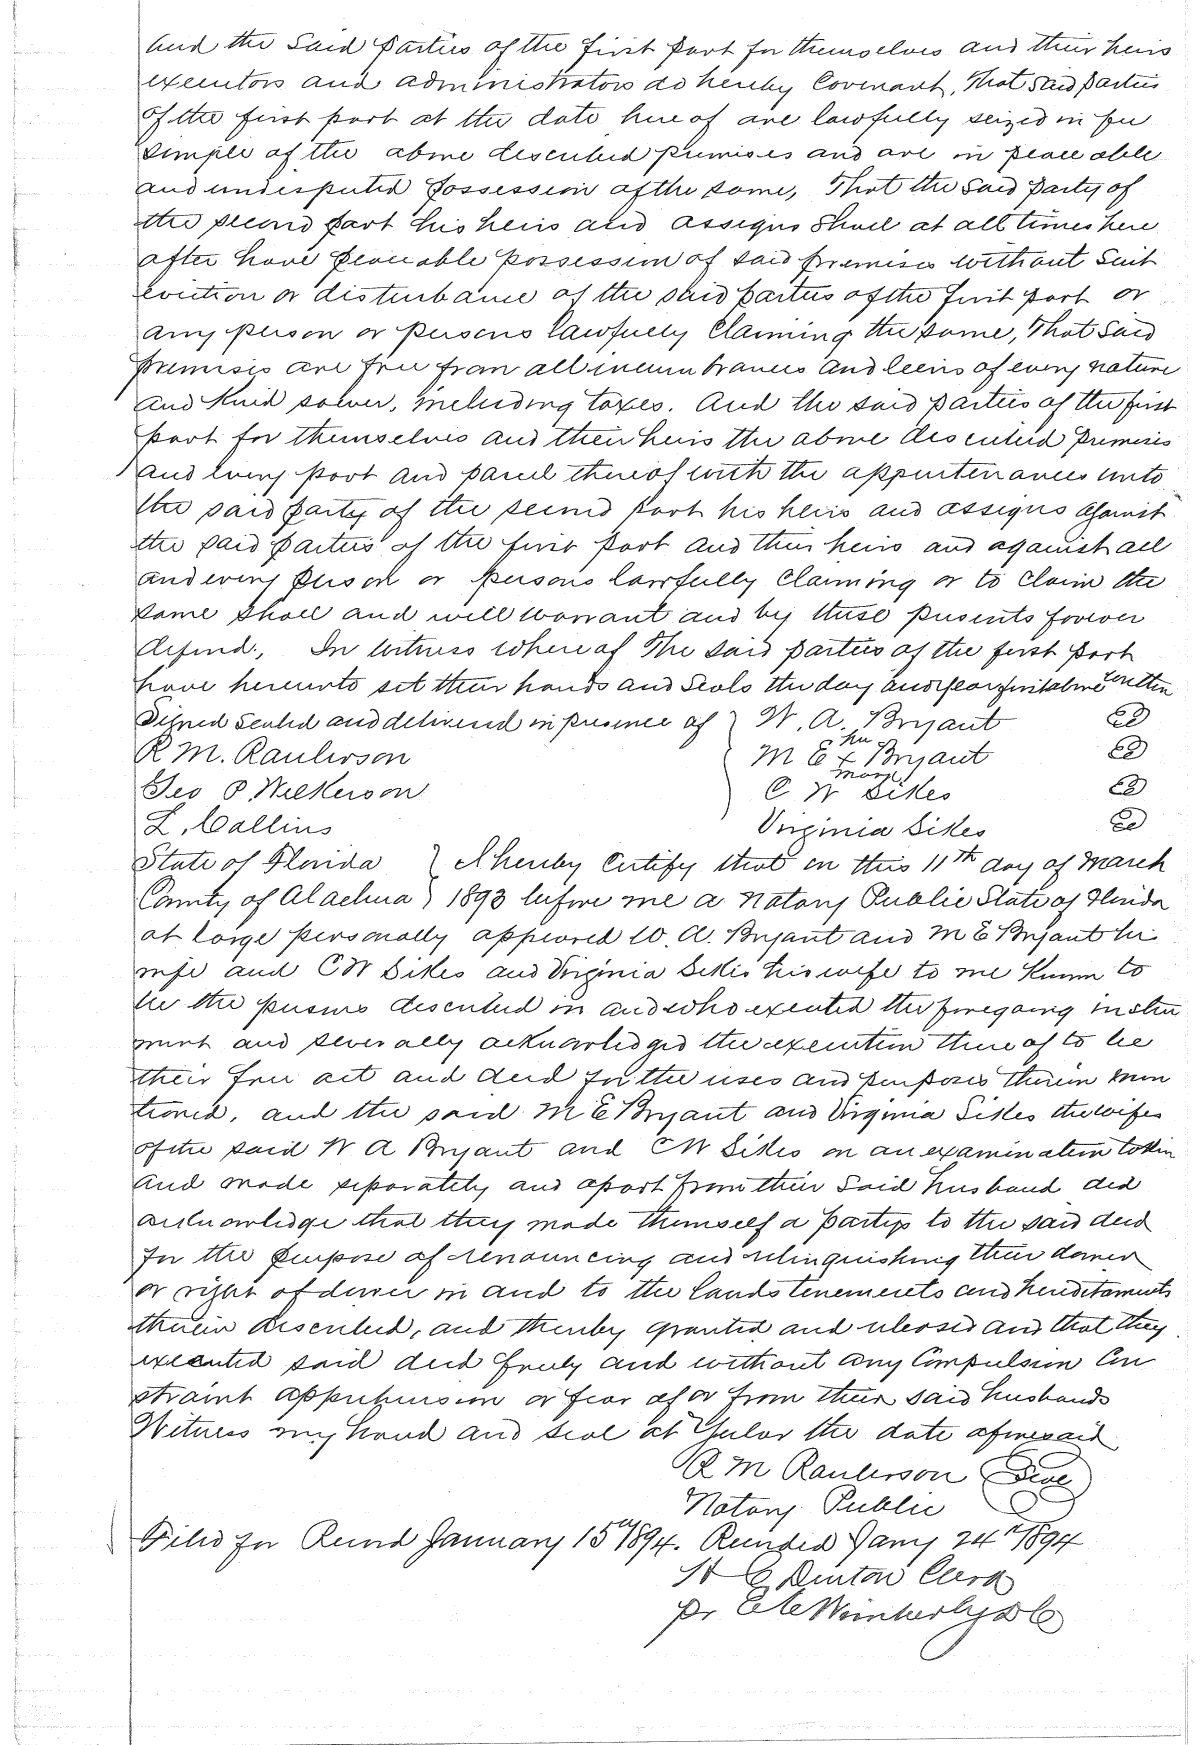 And the Said Parties of the First Part for themselves and their heirs
executors and administrators do hereby Covenant, That Said parties
of the first part at the date here of are lawfully seized in fee
simple of the above described premises and are in peace able
and undisputed possession of the same, That the Said Party of
the second part his heirs and assigns Shall at all times here
after have peaceable possession of said premises without Suit
eviction or disturbance of the said parties of the First part or
any person or persons lawfully Claiming the same, That Said
premises are free from all incumbrances and leins of every nature
and kind soever, including taxes. And the said parties of the first
part for themselves and their heirs the above described premises
and every part and parcel thereof with the appurtenances unto
the said party of the second part his heirs and assigns against
the said parties of the first part and their heirs and against all
and every person or persons lawfully Claiming or to Claim the
same shall and will warrant and by these presents forever
defend., In Witness where of The said parties of the first part
have hereunto set their hands and Seals the day and year first above written
Signed Sealed and delivered in presence of } W. A. Bryant
R M. Raulerson M E her x mark Bryant
Geo P. Wilkerson C W Sikes
L. Collins Virginia Sikes
State of Florida } I hereby Certify that on this 11th day of March
County of Alachua } 1893 before me a Notary Public State of Florida
at large personally appeared W. A. Bryant and M E Bryant his
wife and C W Sikes and Virginia Sikes his wife to me Known to
be the persons described in and who executed the foregoing instru
ment and severally acknowledged the execution there of to be
their free act and deed for the uses and purposes therein men
tioned, and the said M E Bryant and Virginia Sikes the wifes
of the said W A Bryant and C W Sikes on an examination taken
and made separately and apart from their Said husband did
acknowledge that they made themself a party to the said deed
for the purpose of renouncing and relinquishing their dower
or right of dower in and to the lands tenements and hereditaments
therein described, and thereby granted and released and that they
executed said deed freely and without any Compulsion Con
straint apprehension or fear of or from their said husbands
Witness my hand and seal at Yular the date aforesaid
R M Raulerson Seal
Notary Public
Filed for Record January 15th 1894. Recorded Jany 24th 1894
H C Denton Clerk
pr E C Wimberly D C